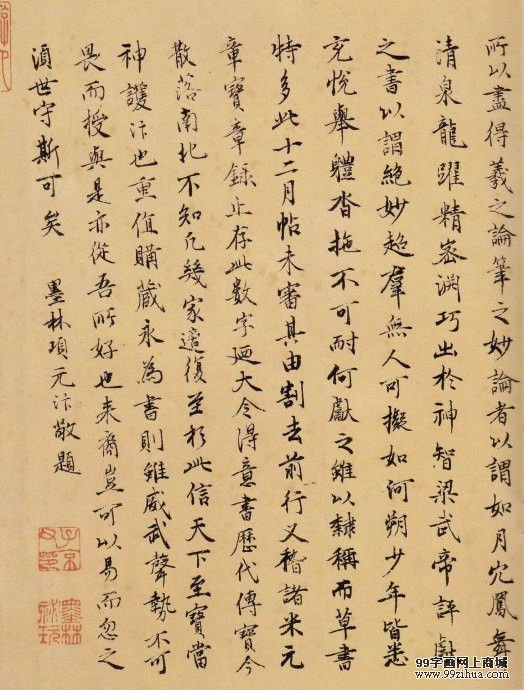 所以盡得羲之論筆之妙論者以謂如丹穴鳳舞
清泉龍躍精密淵巧出於神智梁武帝評獻
之書以謂絕妙超羣無人可擬如河朔少年皆悉
充悅舉體沓拖不可耐何獻之雖以隸稱而草書
特多此十二月帖未審其由割去前行又稽諸米元
章寶章錄止存此數字廼大令得意書歷代傳寶今
散落南北不知凡幾家邅復至於此信天下至寶當
神護汴也重值購藏永為書則雖威武聲勢不可
畏而授與是亦從吾所好也來裔豈可以易而忽之
湏世守斯可矣
墨林項元汴敬題
子京父印
墨林祕玩
99字画网上商城
www.99zihua.com